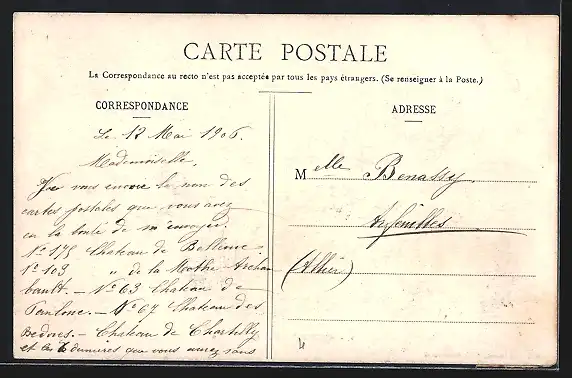 CARTE POSTALE
La Correspondance au recto n'est pas acceptée par tous les pays étrangers. (Se renseigner à la Poste.)
CORRESPONDANCE
Le 12 Mai 1906.
Mademoiselle,
Je vous envoie le nom des
cartes postales que vous avez
eu la bonté de m'envoyer.
No 175 Chateau de Bellenc
No 103 " de la Mothe Archam
bault. — No 63 Chateau de
No 67 Chateau des
Chateau de Chantilly
et les 6 dernières que vous aurez sans
ADRESSE
Melle Benassy
Arfeuilles
(Allier)